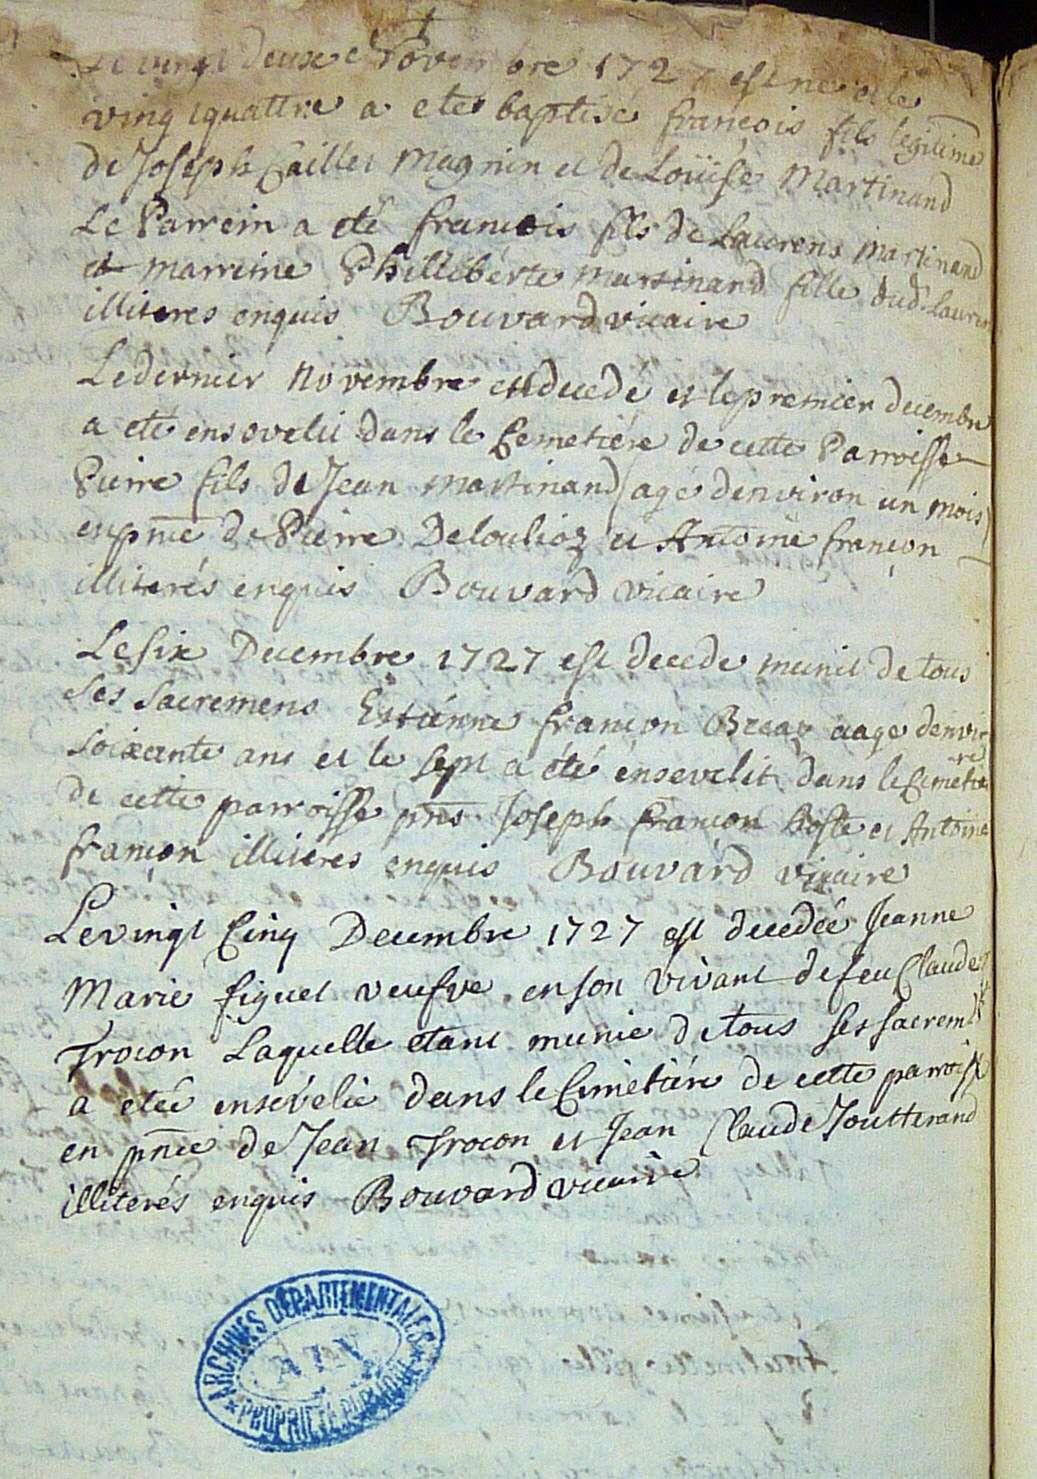 Le vingt deux e Novembre 1727 est né et le
vingt quattre a eté baptisé françois fils legitime
de Joseph Caillet Magnin et de Loüise Martinand
Le Parrein a eté francois fils de Laurens Martinand
et marreine Philliberte Martinand fille dud. Lauren
illiteres enquis Bouvard vicaire
Le dernier novembre est decedé et le premier decembre
a eté ensoveli dans le Cemetiére de cette Parroisse
Pierre fils de Jean Martinand (agé denviron un mois)
en pnce de Pierre Deloulioz et Antoine françon
illiterés enquis Bouvard vicaire
Le six Decembre 1727 est decede munit de tous
ses sacremens Estiénne françon Breaz aage denvir
soixante ans et le sept a été ensevelit dans le Cimetie
re
de cette parroisse pns Joseph françon hoste et Antoine
françon illiteres enquis Bouvard vicaire
Le vingt Cinq Decembre 1727 est decedée Jeanne
Marie figuet veufve en son vivant de feu Claude
Trocon Laquelle etant munie de tous ses sacremts
a etéé ensévelie dans le Cimetiére de cette parroisse
en pnce de Jean Trocon et Jean Claude Joutterand
illiterés enquis Bouvard vicaire
ARCHIVES DÉPARTEMENTALES
AIN
PROPRIÉTÉ PUBLIQUE